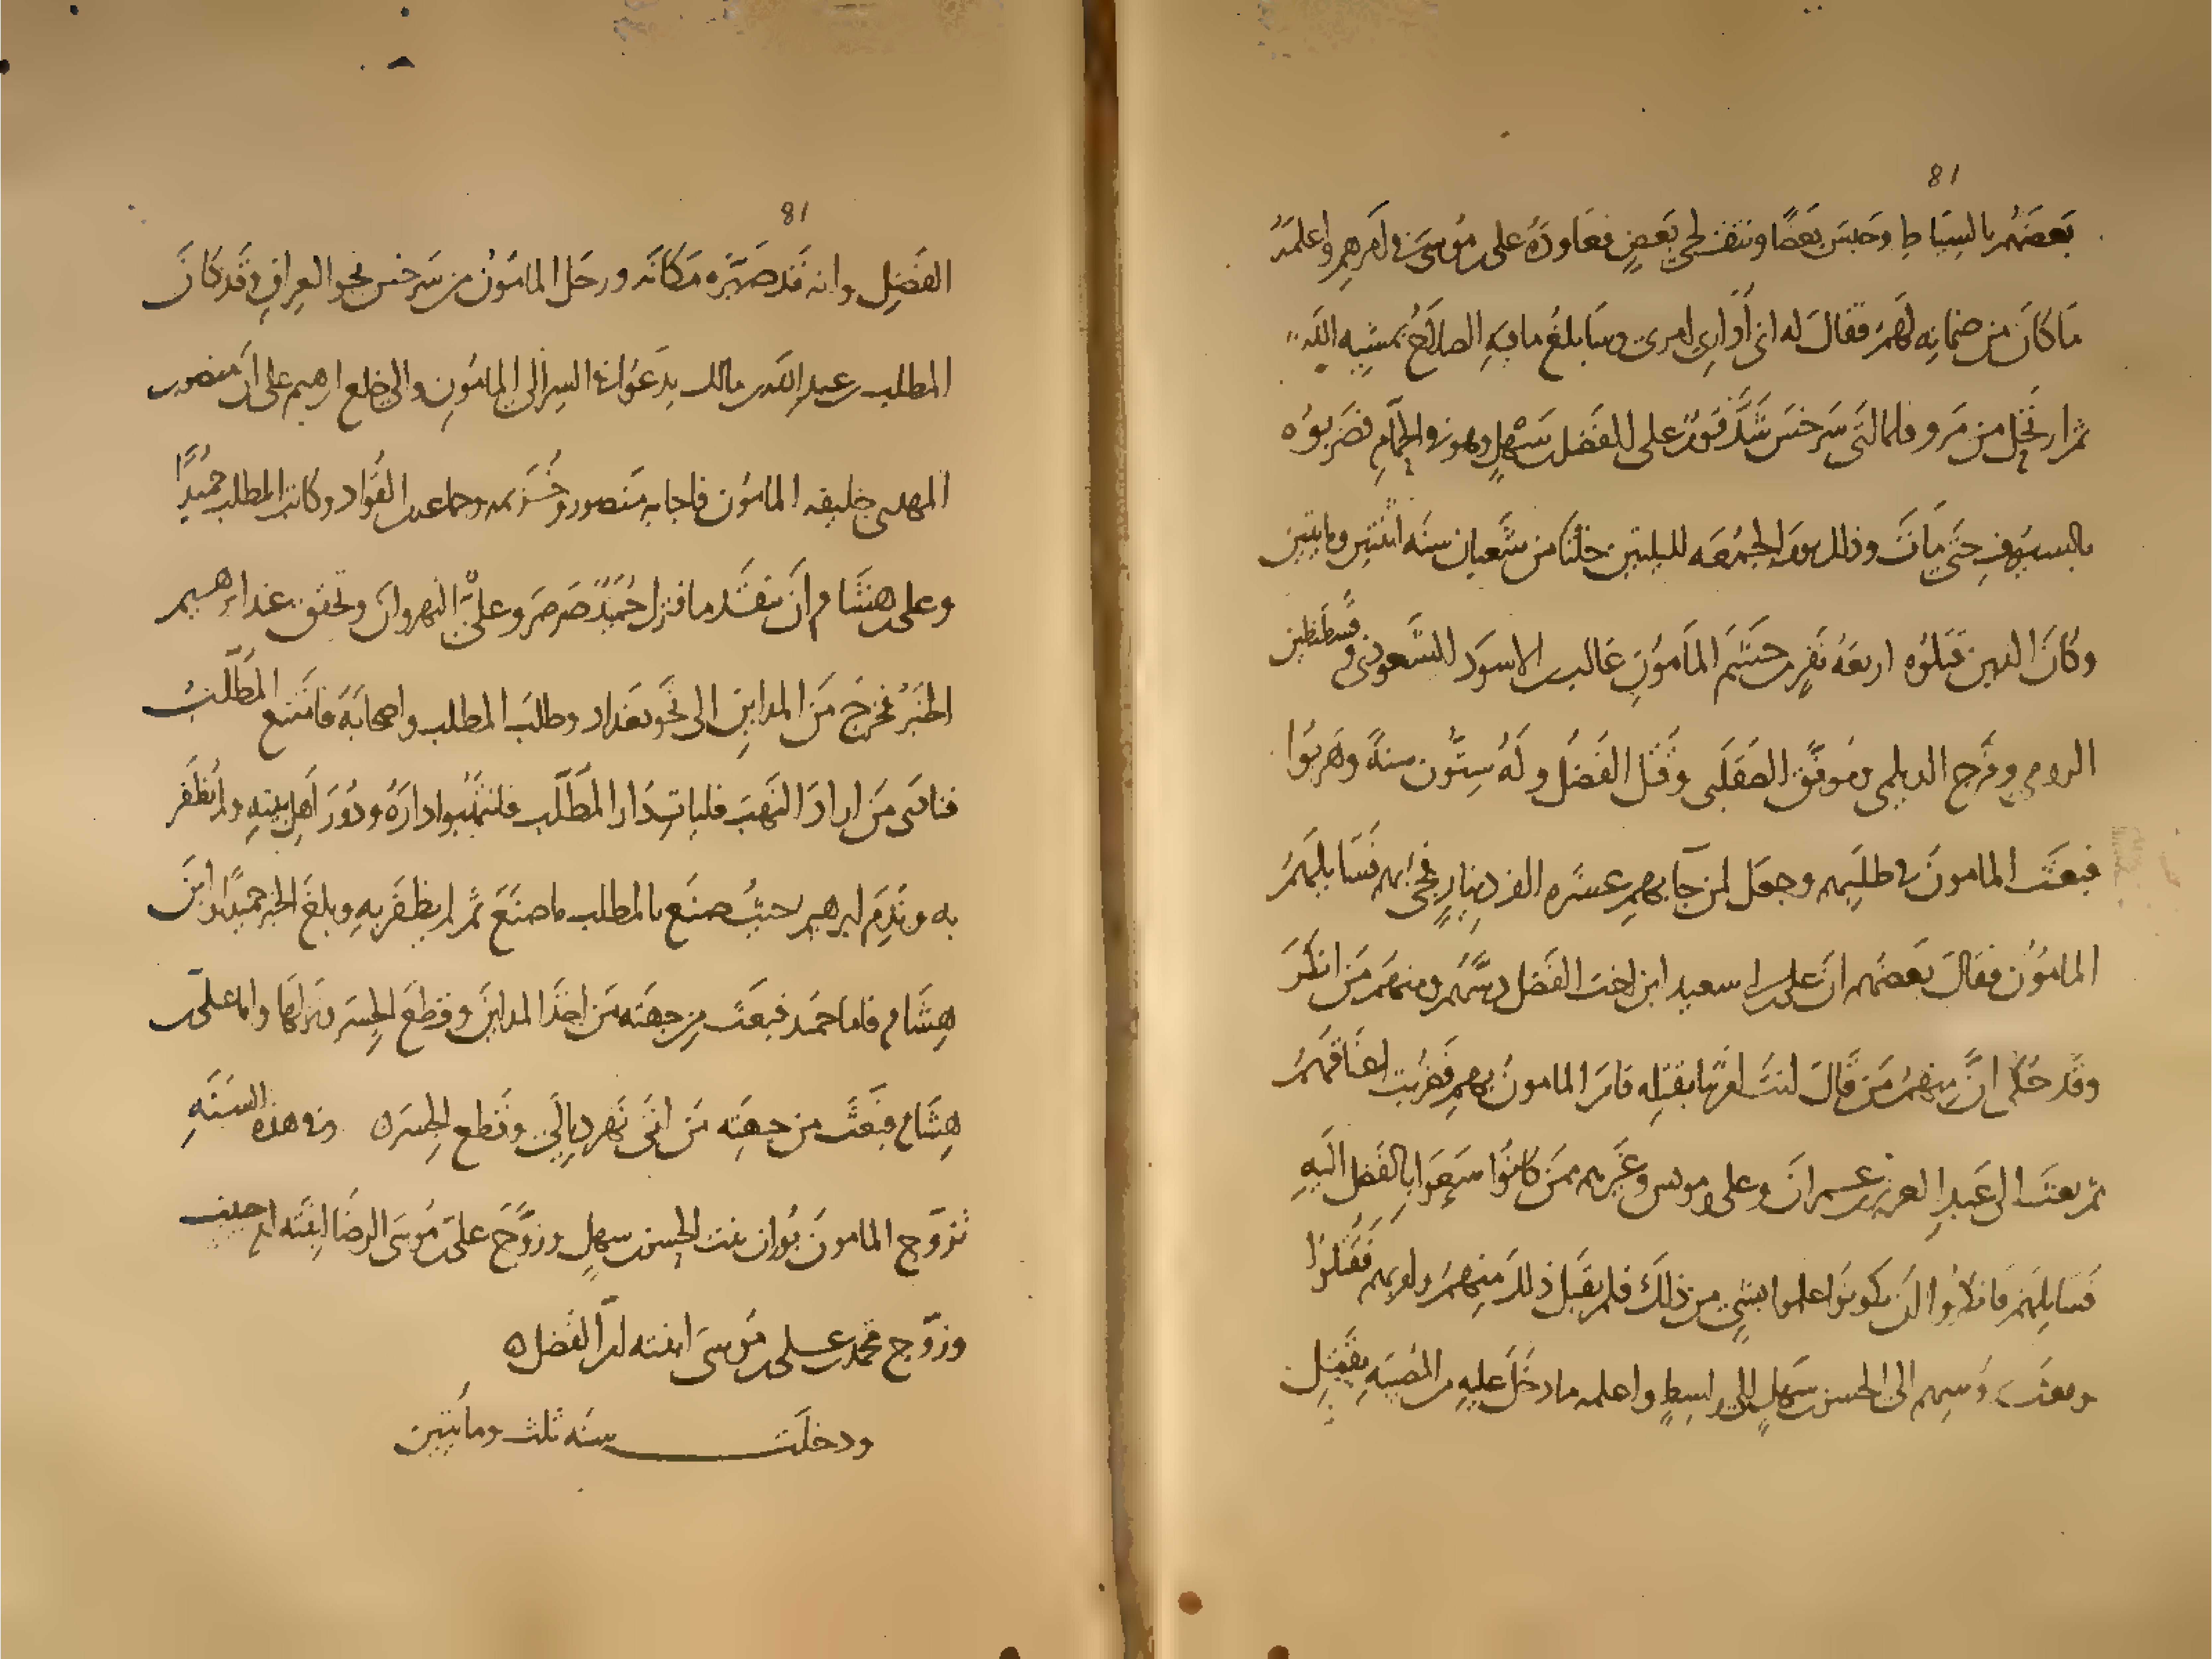 81
بعضهم بالسياط وحبس بعضا ونتف لحى بعض فعاوده على بن موسى في امرهم واعلمه
ما كان من ضمانه لهم فقال له اني أداري امري وسابلغ ما فيه الصلاح بمشيه الله
ثم ارتحل من مرو فلما اتى سرخس شد قوم على الفضل بن سهل وهو في الحمام فضربوه
بالسيوف حتى مات وذلك يوم الجمعه لليلتين خلتا من شعبان سنه اثنتين ومايتين
وكان الذين قتلوه اربعه نفر من حشم المامون غالب الاسود المسعودي وقسطنطين
الرومي وفرج الديلمي وموفق الصقلبي وقتل الفضل وله ستون سنة وهربوا
فبعث المامون في طلبهم وجعل لمن جآ بهم عشره الف دينار فجئ بهم فسايلهم
المامون فقال بعضهم ان على بن ابي سعيد ابن اخت الفضل دسهم ومنهم من انكر
وقد حكي انّ منهم من قال انت امرتنا بقتله فامر المامون بهم فضربت اعناقهم
ثم بعث الى عبد العزيز بن عمران وعلى وموسى وغيرهم ممن كانوا سعوا بالفضل اليه
فسايلهم فانكروا ان يكونوا علموا بشي من ذلك فلم يقبل ذلك منهم وامر بهم فقتلوا
وبعث برؤسهم الى الحسن بن سهل الى واسط واعلمه ما دخل عليه من المصيبه بقتل
81
الفضل وانه قد صيره مكانه ورحل المامون من سرخس نحو العراق وقد كان
المطلب بن عبد الله بن مالك يدعو في السر الى المامون والى خلع ابرهيم على ان منصور بن
المهدى خليفه المامون فاجابه منصور وخزيمه وجماعه من القواد وكاتب المطلب حميدا
وعلى بن هشام ان يتقدما فنزل حميد صرصر وعلى النهروان وتحقق عند ابرهيم
الخبر فخرج من المداين الى نحو بغداد وطلب المطلب واصحابه فامتنع المطلب
فنادى من اراد النهب فليات دار المطلب فانتهبوا داره ودور اهل بيته ولم يظفر
به وندم ابرهيم حيث صنع بالمطلب ما صنع ثم لم يظفر به وبلغ الخبر حميدا وابن
هشام فاما حميد فبعث من جهته من اخذ المداين وقطع الجسر ونزل بها واما على بن
هشام فبعث من جهته من اتى نهر ديالى وقطع الجسر ه وفي هذه السنه
تزوج المامون بوران بنت الحسن بن سهل وزوج على بن موسى الرضا ابنته ام حبيب
وزوج محمد بن على بن موسى ابنته ام الفضل ه
ودخلت سنه ثلث ومائتين